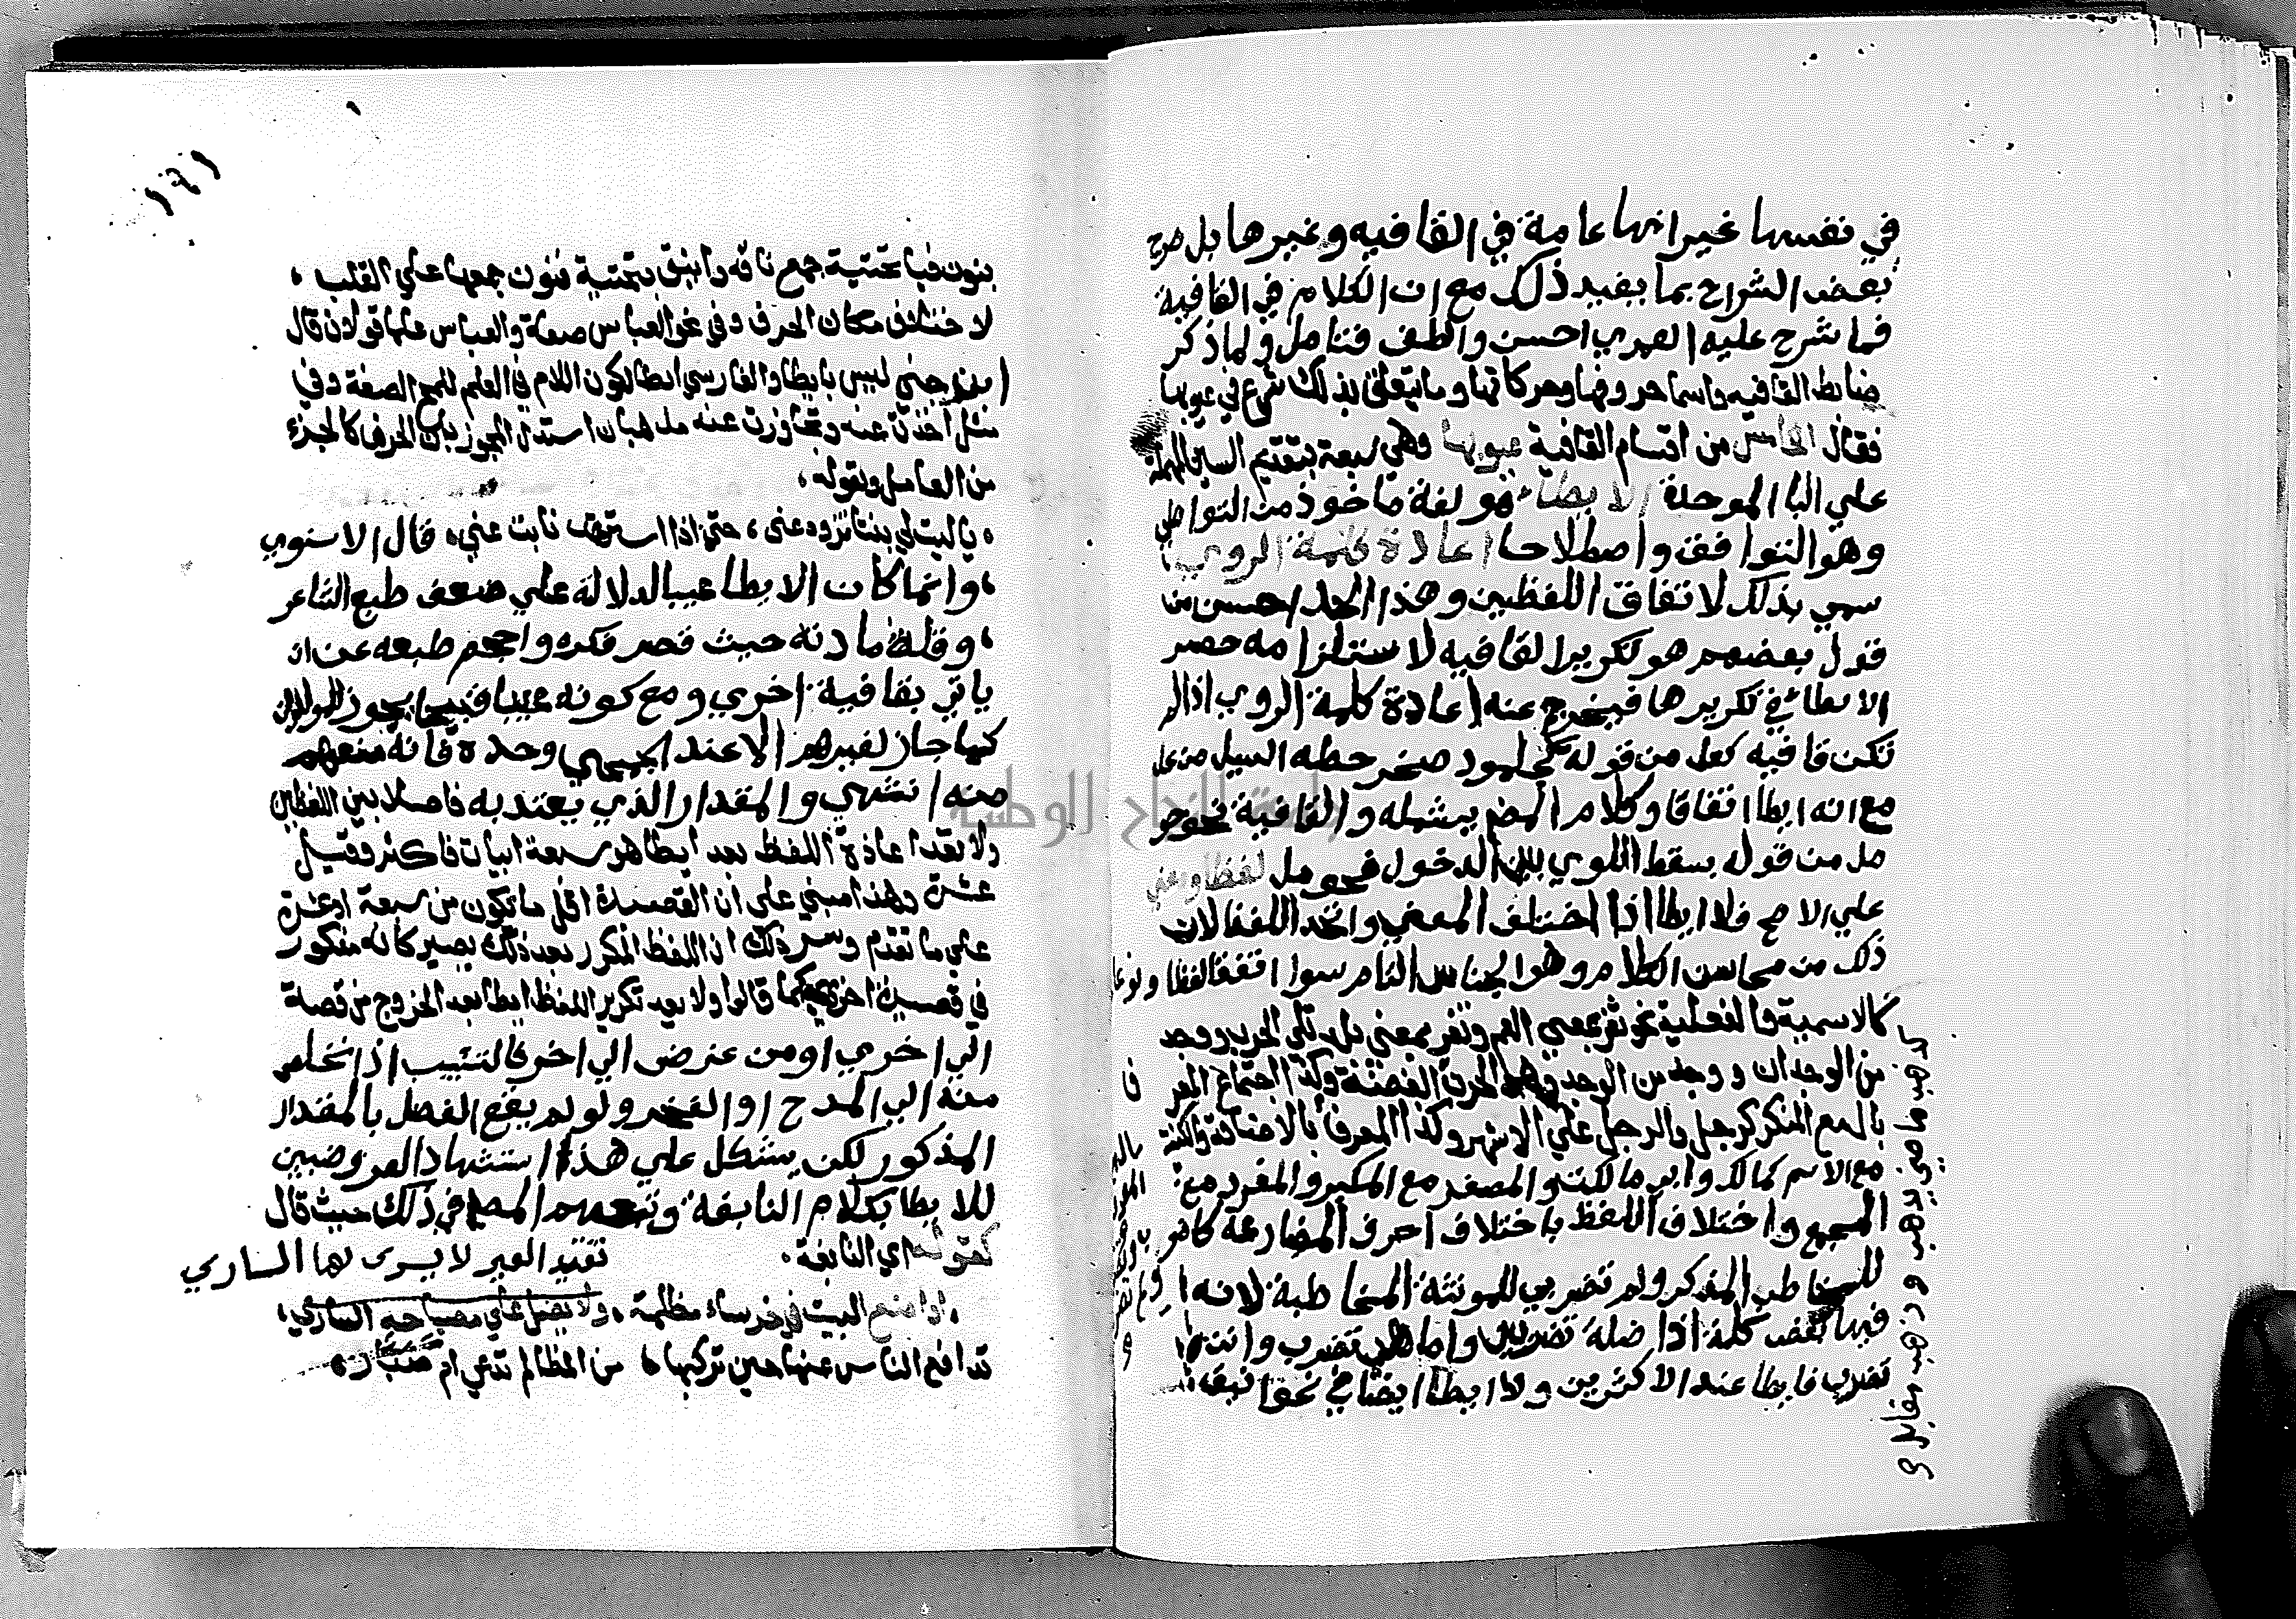 في نفسها غير انها عامة في القافيه وغيرها بل صرح
بعض الشراح بما يفيد ذلك مع ان الكلام في القافية
فما شرح عليه العمري احسن والطف فتامل ولما ذكر
ضابط القافيه واسما حروفها وحركاتها وما يتعلق بذلك شرع في عيوبها
فقال الخامس من اقسام القافية عيوبها وهي سبعة بتقديم السين المهملة
علي البا الموحدة الايطاء هو لغة ماخوذ من التواطي
وهو التوافق واصطلاحا اعادة كلمة الروي
سمي بذلك لاتفاق اللفظين وهذا الحد احسن من
قول بعضهم هو تكرير القافيه لاستلزامه حصر
الايطاء في تكريرها فيخرج عنه اعادة كلمة الروي اذا لم
تكن قافيه كعل من قوله كجلمود صخر حطه السيل من عل
مع انه ايطا اتفاقا وكلام المص يشمله والقافية نحو حو
مل من قوله بسقط اللوي بين الدخول فحومل لفظا ومعني
علي الاصح فلا ايطا اذا اختلف المعني واتحد اللفظ لان
ذلك من محاسن الكلام وهو الجناس التام سوا اتفقا لفظا ونوعا
كالاسمية والفعلية نحو ثغر بمعني الفم وثغر بمعني بلد تلي الحرب ووجد
من الوجدان ووجد من الوجد وهو الحزن الفضة وكذا اجتماع المعر
بالمع المنكر كرجل والرجل علي الاشهر وكذا المعرف بالاضافة والكنية
مع الاسم كمالك وابي مالك والمصغر مع المكبر والمفرد مع
الجمع واختلاف اللفظ باختلاف احرف المضارعة كاهو
للمخاطب المذكر ولم تضربي للمونثة المخاطبة لانه
فيها بعض كلمة اذا صله تضربين واما هي تضرب وانت
تضرب فايطا عند الاكثرين ولا ايطا ايضا في نحو انيق
ذاهب
بنون فيا تحتية جمع ناقه واينق بتحتية فنون جمعها علي القلب
لاختلاف مكان الحرف وفي نحو العباس صفة والعباس علما قولان قال
ابن جني ليس بايطا والفارسي ايطا لكون اللام في العلم للمح الصفة وفي
مثل اخذت عنه وتجاوزت عنه مذهبان استدل المجوز بان الحرف كالجزء
من العامل وبقوله
ياليت لي بنتا تزود عني حتي اذا استرقت نابت عني قال الاسنوي
وانما كان الايطا عيبا لدلالة علي ضعف طبع الشاعر
وقلة مادته حيث قصر فكره واحجم طبعه عن ان
ياتي بقافية اخري ومع كونه عيبا قبيحا يجوز للمولدين
كما جاز لغيرهم الا عند الجمحي وحده فانه منعهم
منه انتهي والمقدار الذي يعتد به فاصلا بين اللفظين
ولا تعد اعادة اللفظ بعد ايطا هو سبعة ابيات فاكثر وقيل
عشرة وهذا مبني على ان القصيدة اقل ما تكون من سبعة او عشرة
علي ما تقدم وسر ذلك ان اللفظ المكرر بعد ذلك يصير كانه مذكور
في قصيدة اخري كما قالوا ولا يعد تكرير اللفظ ايطا بعد الخروج من قصة
الي اخري او من غرض الي اخر كالتشبيب اذا تخلص
منه الي المدح او الفخر ولو لم يقع الفصل بالمقدار
المذكور لكن يشكل علي هذا استشهاد العروضيين
للايطا بكلام النابغة وتبعهم المص في ذلك حيث قال
كقوله اي النابغة
تقيد العير لا يسرى لها الساري
اواضع البيت في خرساء مظلمة
ولا يضل علي مصباحه الساري
تدافع الناس عنها حين تركبها من المظالم تدعي ام صبار